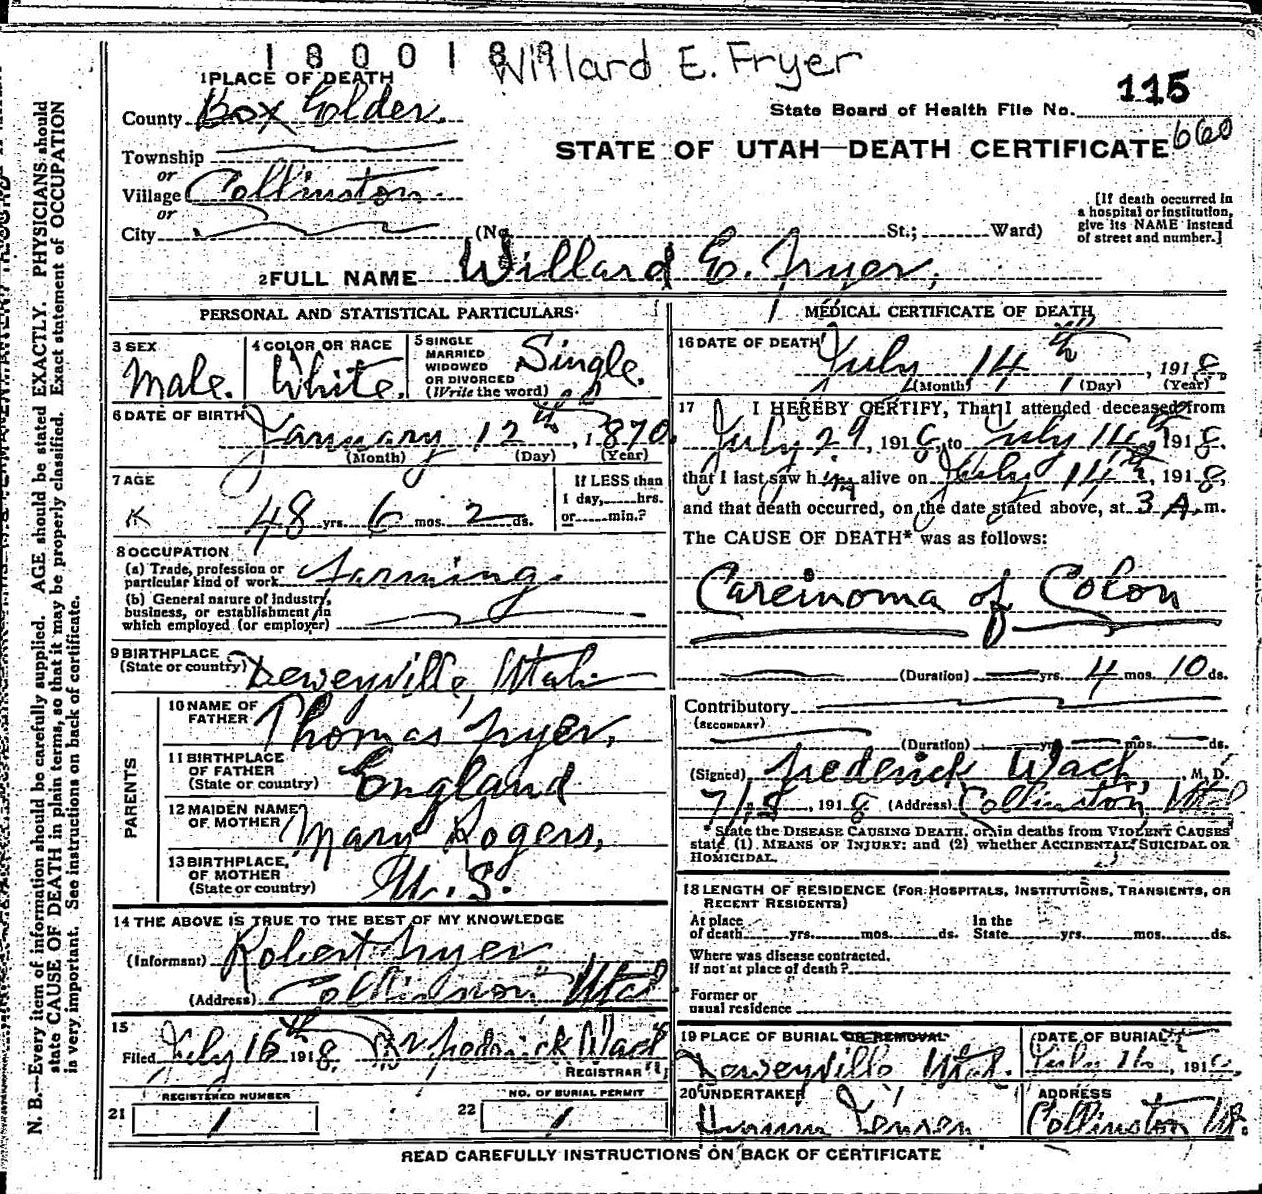 1 8 0 0 1 8 9 Willard E. Fryer
1 PLACE OF DEATH
County Box Elder.
State Board of Health File No. 115
660
STATE OF UTAH—DEATH CERTIFICATE
Township
or
Village Collinston.
or
City (No. St.; Ward)
[If death occurred in
a hospital or institution,
give its NAME instead
of street and number.]
2 FULL NAME Willard E. Fryer,
PERSONAL AND STATISTICAL PARTICULARS
3 SEX
Male.
4 COLOR OR RACE
White.
5 SINGLE
MARRIED
WIDOWED
OR DIVORCED
(Write the word)
Single.
6 DATE OF BIRTH
January 12th, 1870.
(Month) (Day) (Year)
7 AGE
48 yrs. 6 mos. 2 ds.
If LESS than
1 day, hrs.
or min.?
8 OCCUPATION
(a) Trade, profession or
particular kind of work Farming.
(b) General nature of industry,
business, or establishment in
which employed (or employer)
9 BIRTHPLACE
(State or country) Deweyville, Utah
PARENTS
10 NAME OF
FATHER Thomas Fryer,
11 BIRTHPLACE
OF FATHER
(State or country) England
12 MAIDEN NAME
OF MOTHER Mary Rogers,
13 BIRTHPLACE
OF MOTHER
(State or country) U.S.
14 THE ABOVE IS TRUE TO THE BEST OF MY KNOWLEDGE
(Informant) Robert Fryer
(Address) Collinston Utah
15
Filed July 16th 1918, Frederick Wach
REGISTRAR
21 REGISTERED NUMBER
1
22 NO. OF BURIAL PERMIT
1
MEDICAL CERTIFICATE OF DEATH
16 DATE OF DEATH
July 14th, 1918,
(Month) (Day) (Year)
17 I HEREBY CERTIFY, That I attended deceased from
July 29, 1918, to July 14th 1918.
that I last saw him alive on July 14th, 1918,
and that death occurred, on the date stated above, at 3 A. m.
The CAUSE OF DEATH* was as follows:
Carcinoma of Colon
(Duration) yrs. 4 mos. 10 ds.
Contributory
(SECONDARY)
(Duration) yrs. mos. ds.
(Signed) Frederick Wach, M. D.
7/15, 1918 (Address) Collinston, Utah
*State the DISEASE CAUSING DEATH, or in deaths from VIOLENT CAUSES
state (1) MEANS OF INJURY: and (2) whether ACCIDENTAL, SUICIDAL OR
HOMICIDAL.
18 LENGTH OF RESIDENCE (FOR HOSPITALS, INSTITUTIONS, TRANSIENTS, OR
RECENT RESIDENTS)
At place
of death yrs. mos. ds.
In the
State yrs. mos. ds.
Where was disease contracted.
If not at place of death?
Former or
usual residence
19 PLACE OF BURIAL OR REMOVAL
Deweyville Utah.
DATE OF BURIAL
July 16, 1918.
20 UNDERTAKER
Jensen
ADDRESS
Collinston Ut.
READ CAREFULLY INSTRUCTIONS ON BACK OF CERTIFICATE
N. B.—Every item of information should be carefully supplied. AGE should be stated EXACTLY. PHYSICIANS should
state CAUSE OF DEATH in plain terms, so that it may be properly classified. Exact statement of OCCUPATION
is very important. See instructions on back of certificate.